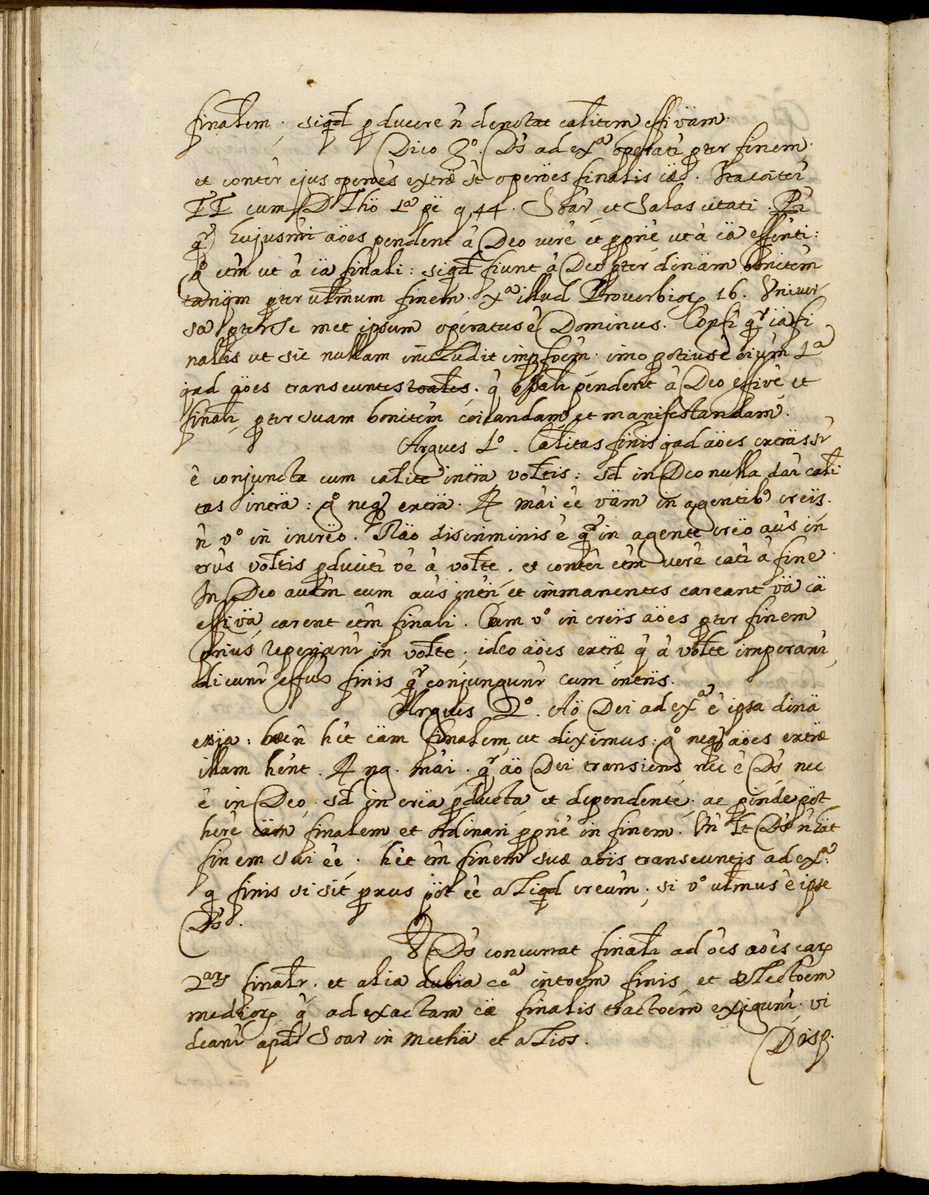 finalem. siqd producere n denotat calitem effivam.
Dico 3º. Ds ad exª operati pter finem.
et conter ejus operões extræ st operões finalis cæ. Ita coiter
TT cum D Tho 1ª pe q 44. Soar et Salas citati. Pr
qr hujusmi aões pendent â Deo verê et pprie ut â ca effnti:
qº etm ut â ca finali: siqd fiunt â Deo pter dinam bonitem
tanqm pter ultmum finem. xª illud Proverbior 16. Univer
sa pter se met ipsum operatus ê Dominus. Confi qr ca fi
nalis ut sic nullam includit impfoem. imo potius ê oium 1ª
qad aões transeuntes. q pendent â Deo effive et
finali pter suam bonitem coicandam et manifestandam.
Argues 1º. Calitas finis qad aões extras sr
ê conjuncta cum calite intra voltis: sd in Deo nulla dar cali
tas intra: qº neq extra. R mai êê vam in agentib creis.
n vº in increo. Rão discriminis ê qr in agente creo aus in
erus voltis pduciti ve â volte. et conter etm verê cati â fine.
In Deo autm cum aus intri et immanentes careant va ca
effiva carent etm finali. Cam vº in creis aões pter finem
prius reperianr in volte. ideo aões extræ q â volte imperanr
dicunr effus finis qr conjungunr cum intris.
Argues 2º. Aõ Dei ad exª ê ipsa dina
essia: hæc n het cam finalem ut diximus: qº neq aões extræ
illam hent. R ng. mai. qr aõ Dei transiens nec ê Ds nec
ê in Deo. sd in crea pducta et dependente. ac pinde pot
here cam finalem et ordinari pprie in finem. Un lt Ds n hat
finem sui êê. het tm finem suæ aõis transeuntis ad exª.
q finis si sit pxus pot êê aliqd creum; si vº ultmus ê ipse
Ds.
Ds concurrat finalr ad oes aões car
2ar finalr. et alia dubia cª intoem finis et electoem
medior q ad exactam cæ finalis tractoem exigunr. vi
deanr apd Soar in metha et alios. Disp.